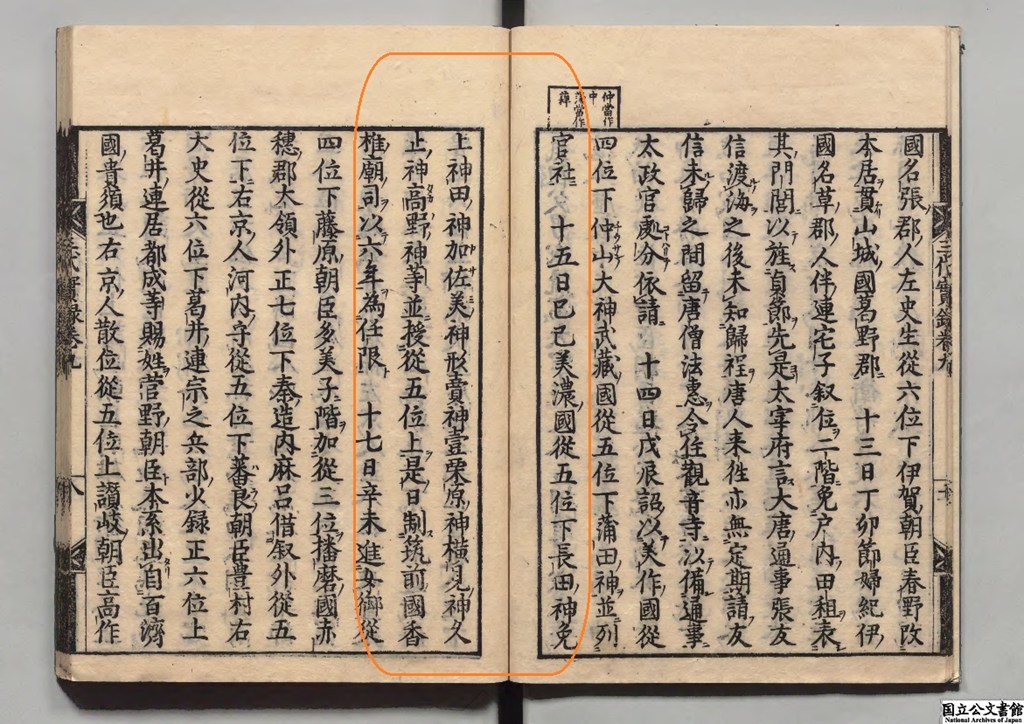 仲當作
中
國名張郡人左史生從六位下伊賀朝臣春野改
本居貫山城國葛野郡　十三日丁卯節婦紀伊
國名草郡人伴連宅子叙位二階免户内田租表
其門閭以旌貞節先是太宰府言大唐通事張友
信渡海之後未知歸程唐人来徃亦無定期請友
信未歸之間留唐僧法惠令住觀音寺以備通事
太政官處分依請　十四日戊辰詔以美作國從
四位下仲山大神武藏國從五位下蒲田神並列
官社　十五日己巳美濃國從五位下長田神免
上神田神加佐美神形賣神壹栗原神横見神久
止神高野神等並授從五位上是日制筑前國香
椎廟司以六年為任限　十七日辛未進女御從
四位下藤原朝臣多美子階加從三位播磨國赤
穗郡大領外正七位下秦造内麻呂借叙外從五
位下右京人河内守從五位下番良朝臣豊村右
大史從六位下葛井連宗之兵部少録正六位上
葛井連居都成等賜姓菅野朝臣本系出自百濟
國貴須也右京人散位從五位上讃岐朝臣高作
三代實録卷九
八
国立公文書館
National Archives of Japan